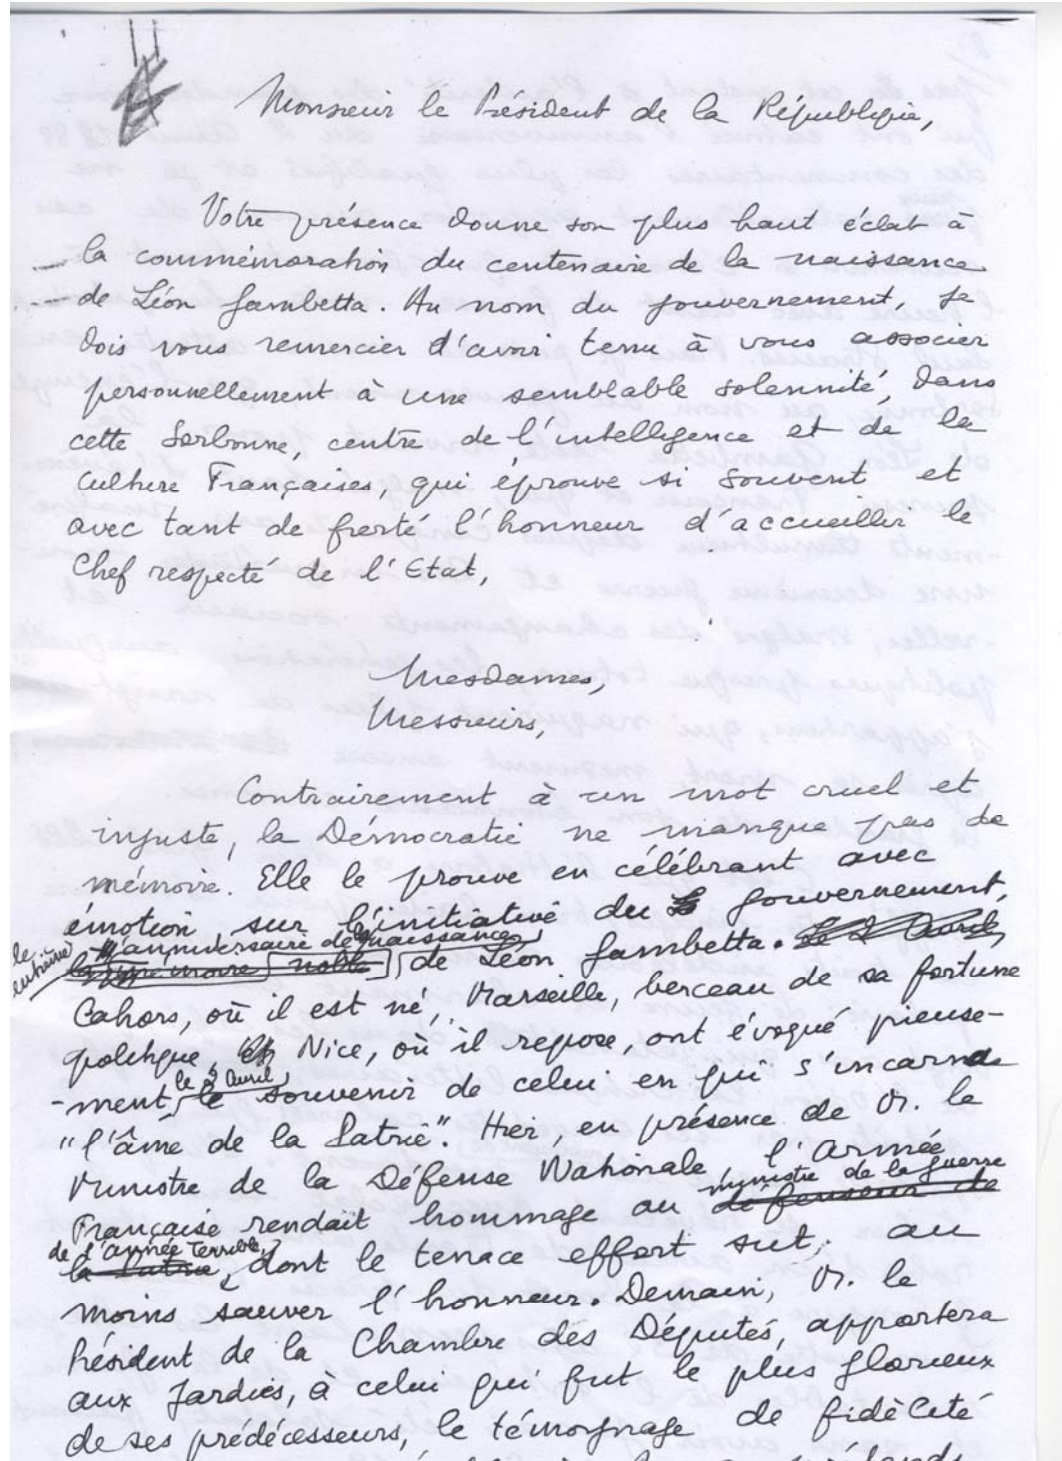 Monsieur le Président de la République,
Votre présence donne son plus haut éclat à
la commémoration du centenaire de la naissance
de Léon Gambetta. Au nom du gouvernement, je
dois vous remercier d'avoir tenu à vous associer
personnellement à une semblable solennité, dans
cette Sorbonne, centre de l'intelligence et de la
Culture Françaises, qui éprouve si souvent et
avec tant de fierté l'honneur d'accueillir le
Chef respecté de l'Etat,
Mesdames,
Messieurs,
Contrairement à un mot cruel et
injuste, la Démocratie ne manque pas de
mémoire. Elle le prouve en célébrant avec
émotion, sur l'initiative du gouvernement,
le centième anniversaire de la naissance
noble de Léon Gambetta. Le 2 Avril,
Cahors, où il est né, Marseille, berceau de sa fortune
politique, et Nice, où il repose, ont évoqué pieuse-
le 2 avril
-ment, le souvenir de celui en qui s'incarna
"l'âme de la Patrie". Hier, en présence de M. le
Ministre de la Défense Nationale, l'Armée
ministre de la guerre
Française rendait hommage au défenseur de
de l'année Terrible,
la Patrie, dont le tenace effort sut, au
moins sauver l'honneur. Demain, M. le
Président de la Chambre des Députés, apportera
aux Jardies, à celui qui fut le plus glorieux
de ses prédécesseurs, le témoignage de fidélité